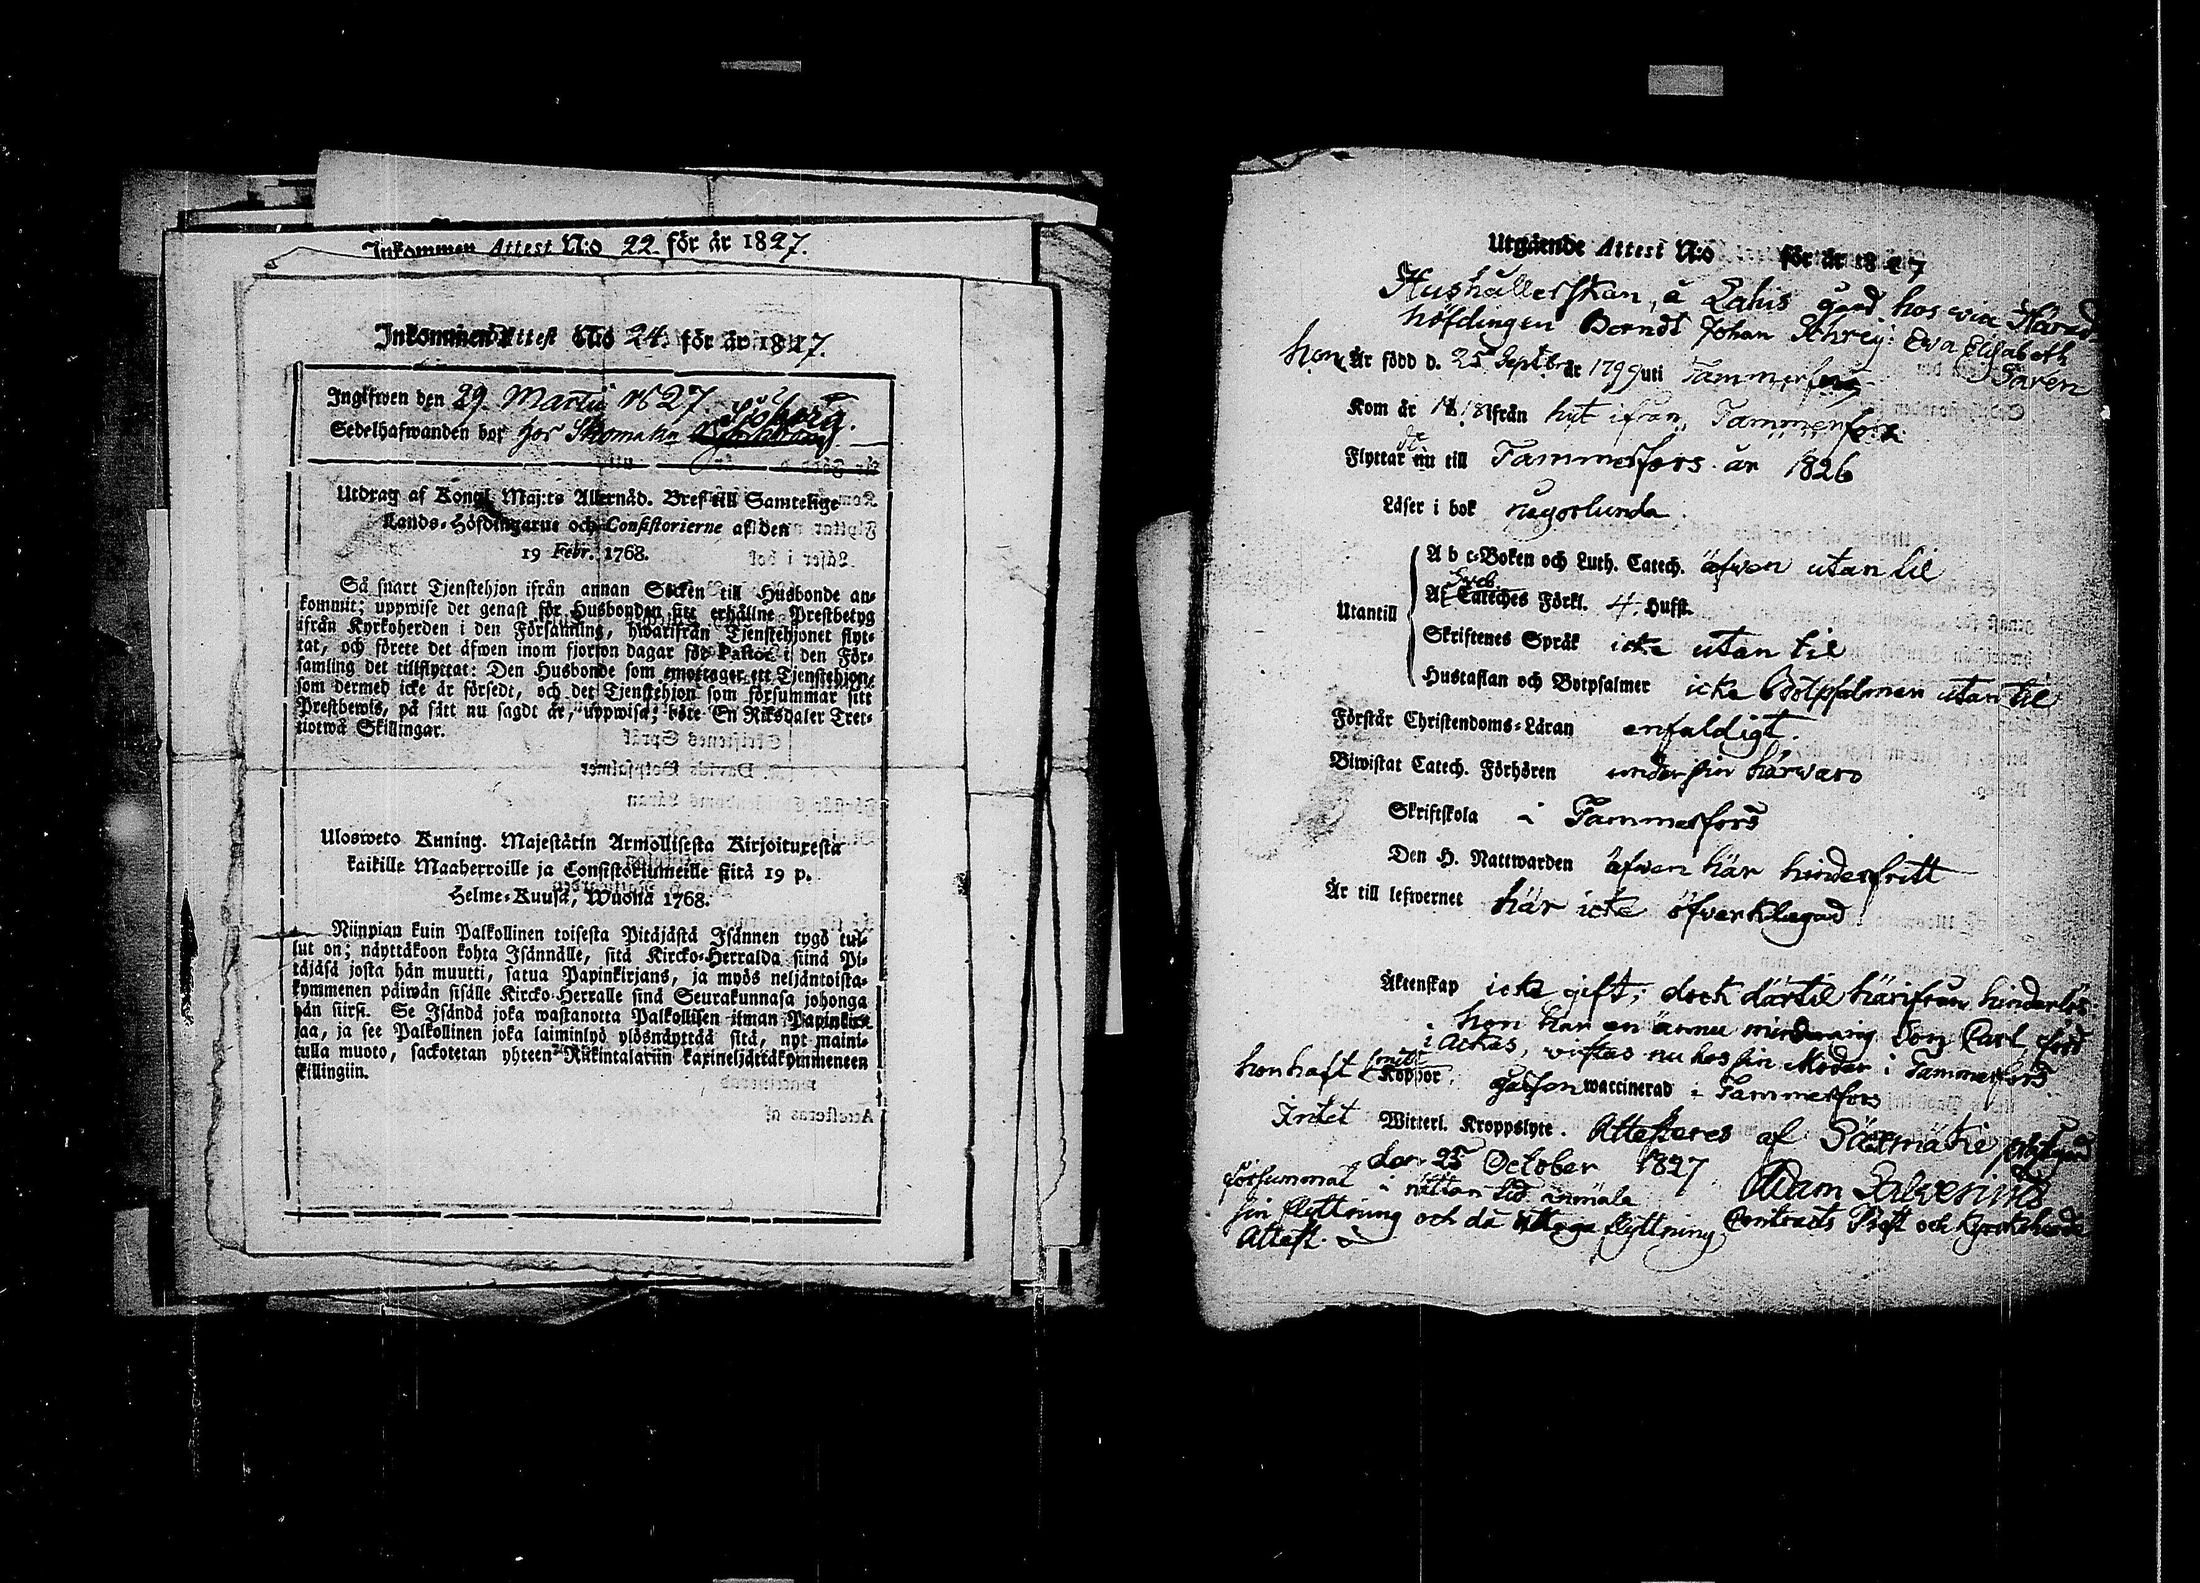 Inkommen Attest N:o 22 för år 1827.
Inkommen Attest N:o 24. för år 1827.
Inglfwen den 29. Martii 1827.
Sjöberg.
Sedelhafwanden bor hos Skomak:
Utdrag af Kongl. Maj:ts Allernåd. Bref till Samtelige
Lands-Höfdingarne och Consistorierne af den
19 Febr. 1768.
Så snart Tjenstehjon ifrån annan Socken till Husbonde an-
kommit; uppwise det genast för Husbonden sitt erhållne Prestbetyg
ifrån Kyrkoherden i den Församling, hwarifrån Tjenstehjonet flyt-
tat, och förete det äfwen inom fjorton dagar för Pastor i den För-
samling det tillflyttat: Den Husbonde som emottager ett Tjenstehjon,
som dermed icke är försedt, och det Tjenstehjon som försummar sitt
Prestbewis, på sätt nu sagdt är, uppwisa; böte En Riksdaler Tret-
tiotwå Skillingar.
Ulosweto Kuning. Majestätin Armollisesta Kirjoituxesta
kaikille Maaherroille ja Consistoriumeille siitä 19 p.
Helme-Kuusa, Wuonna 1768.
Niinpian kuin Palkollinen toisesta Pitäjästä Isännen tygö tul-
lut on; näyttäköön kohta Isännälle, sitä Kircko-Herralda siinä Pi-
täjäsä josta hän muutti, saatua Papinkirjans, ja myös neljäntoista-
kymmenen päiwän sisälle Kircko-Herralle siinä Seurakunnasa johonga
hän siirsi. Se Isändä joka wastanotta Palkollisen ilman Papinkir-
jaa, ja see Palkollinen joka laiminlyö ylösnäyttää sitä, nyt maini-
tulla muoto, sackotetan yhteen Rikintalariin kaxineljättäkymmeneen
skillingiin.
Utgående Attest N:o för år 1827
Hushållerskan, å Lahis gård hos vice Härads
höfdingen Berndt Johan Schrey: Eva Elisabeth
Saren
hon Är född d. 25 Septbr år 1799 uti Tammerfors
Kom år 1818 ifrån hit ifrån Tammerfors
Flyttar nu till Tammerfors år 1826
Läser i bok någorlunda.
Utantill
A b c-Boken och Luth. Catech. äfwen utan til
Af Cateches Förkl. 4. Hufst.
Skriftenes Språk icke utan til
Hustaflan och Botpsalmer icke Botpsalmen utan til
Förstår Christendoms-Läran enfaldigt.
Biwistat Catech. Förhören under sin härwaro
Skriftskola i Tammerfors
Den H. Nattwarden äfwen här hinderfritt
Är till lefwernet här icke öfverklagad
Äktenskap icke gift; dock därtil härifrån hinderlös
hon har en ännu minderårig Son Carl född
i Ackas, wistas nu hos sin Moder i Tammerfors.
hon haft Koppor. wattinerad i Tammerfors
Intet Witterl. Kroppslyte. Attesteres af Säxmäki prästgård
den 25 October 1827
försummat i rättan tid anmäla Adam
sin flyttning och då uttaga flyttning Contracts Prost och Kyrckoherde
Attest.